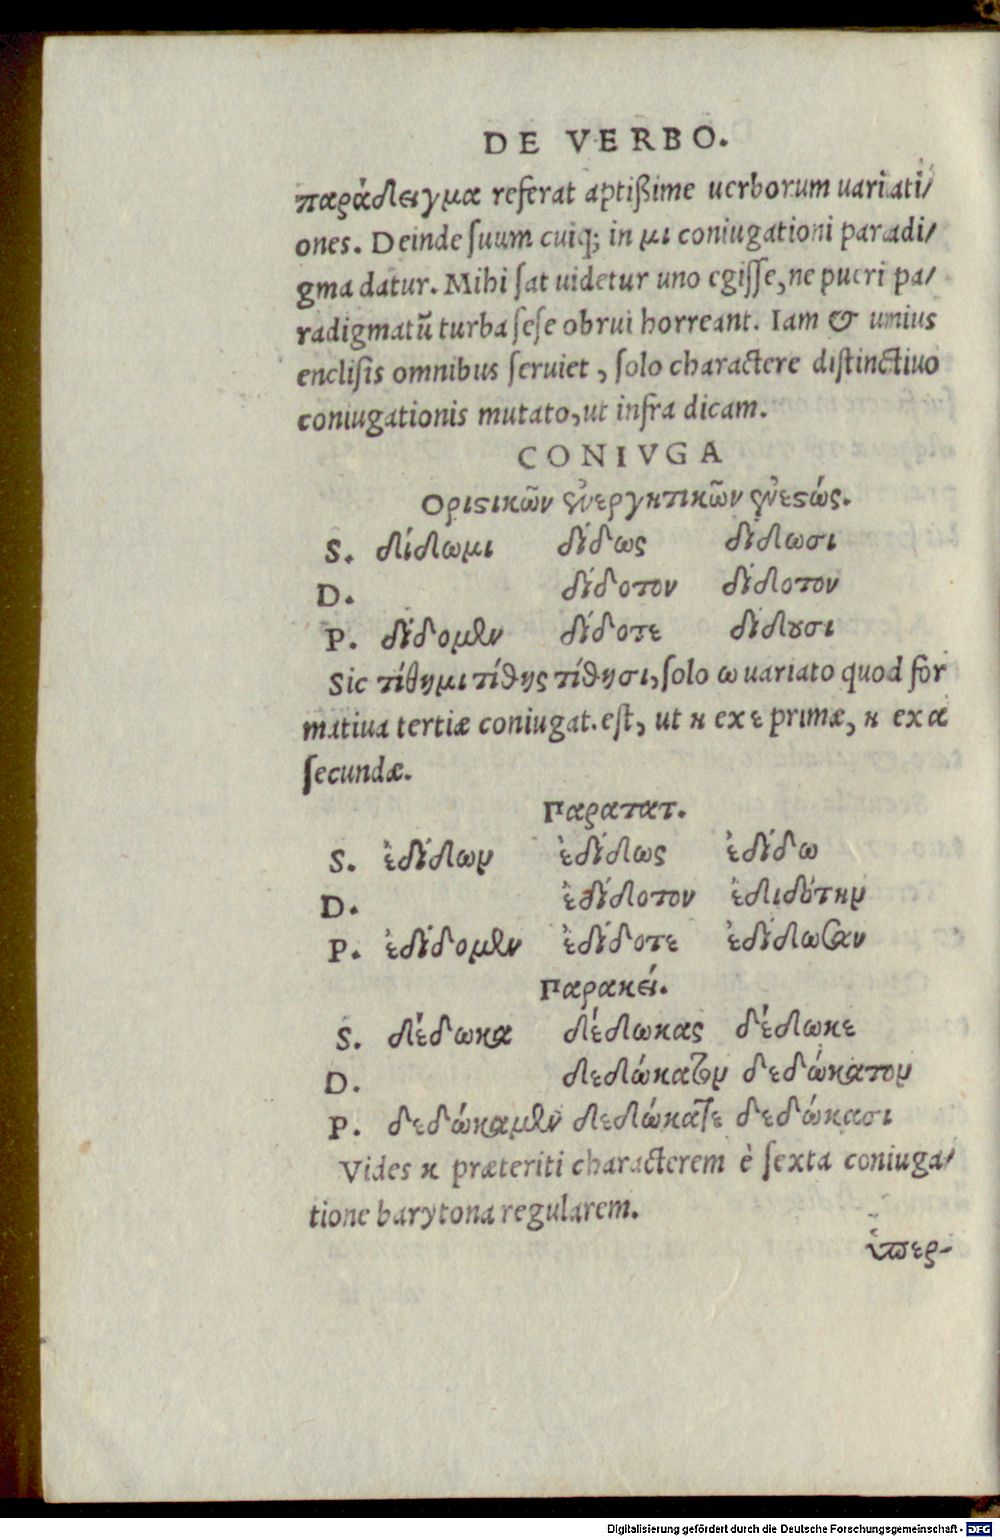 DE VERBO.
παράδειγμα referat aptißime uerborum uariati/
ones. Deinde ſuum cuiq; in μι coniugationi paradi/
gma datur. Mihi ſat uidetur uno egiſſe, ne pueri pa/
radigmatũ turba ſeſe obrui horreant. Iam & unius
encliſis omnibus ſeruiet, ſolo charactere diſtinctiuo
coniugationis mutato, ut infra dicam.
CONIVGA
Οριϛικῶν ἐνεργητικῶν ἐνεϛώς.
S. δίδωμι δίδως δίδωσι
D. δίδοτον δίδοτον
P. δίδομεν δίδοτε δίδȣσι
Sic τίθημι τίθης τίθησι, ſolo ω uariato quod for
matiua tertiæ coniugat. eſt, ut η ex ε primæ, η ex α
ſecundæ.
Παρατατ.
S. ἐδίδων ἐδίδως ἐδίδω
D. ἐδίδοτον ἐδιδότην
P. ἐδίδομεν ἐδίδοτε ἐδίδωσαν
Παρακεί.
S. δέδωκα δέδωκας δέδωκε
D. δεδώκατον δεδώκατον
P. δεδώκαμεν δεδώκατε δεδώκασι
Vides κ præteriti characterem è ſexta coniuga/
tione barytona regularem.
ὑπερ-
Digitalisierung gefördert durch die Deutsche Forschungsgemeinschaft - DFG